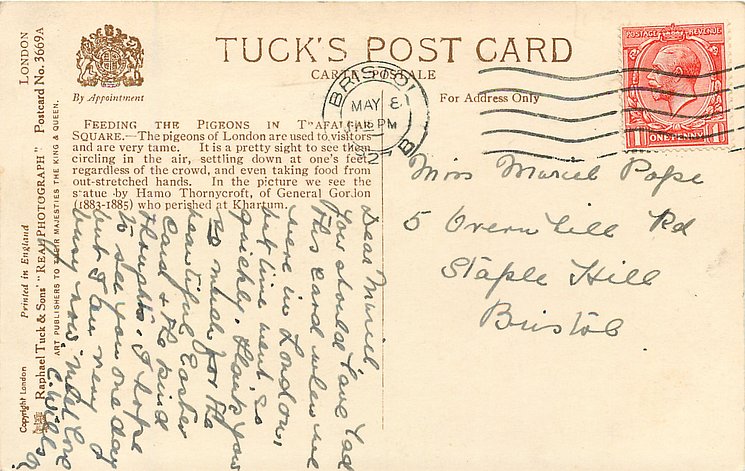 TUCK'S POST CARD
CARTE POSTALE
By Appointment
For Address Only
FEEDING THE PIGEONS IN TRAFALGAR
SQUARE.—The pigeons of London are used to visitors
and are very tame. It is a pretty sight to see them
circling in the air, settling down at one's feet
regardless of the crowd, and even taking food from
out-stretched hands. In the picture we see the
statue by Hamo Thornycroft, of General Gordon
(1883-1885) who perished at Khartum.
LONDON
Postcard No. 3669A
Raphael Tuck & Sons' "REAL PHOTOGRAPH"
ART PUBLISHERS TO THEIR MAJESTIES THE KING & QUEEN.
Printed in England
Copyright London
BRISTOL
MAY 8
PM
POSTAGE REVENUE
1 ONE PENNY 1
Miss Muriel Pope
5 Overn hill Rd
Staple Hill
Bristol
Dear Muriel
You should have had
this card when we
were in London,
but time went so
quickly. Thank you
so much for the
beautiful Easter
Card & the kind
thoughts. I hope
to see you one day
but I am very
busy now. with love